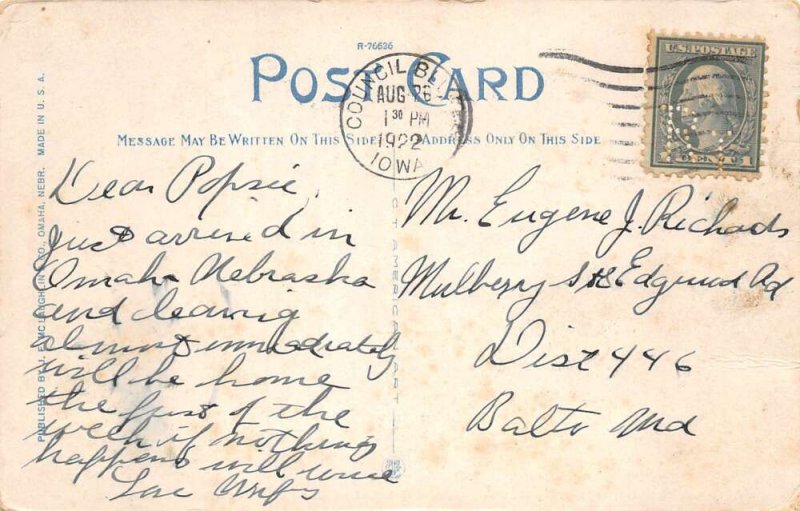 R-76626
POST CARD
COUNCIL BLUFFS
AUG 26
1 30 PM
1922
IOWA
U.S. POSTAGE
1 1
MESSAGE MAY BE WRITTEN ON THIS SIDE
ADDRESS ONLY ON THIS SIDE
Dear Popsie,
Just arrived in
Omaha Nebraska
and leaving
almost immediately
will be home
the first of the
week if nothing
happens will wire
Love
Mr. Eugene J. Richards
Mulberry Edgwood Rd
Dist 446
Balto Md
PUBLISHED BY MCLAUGHLIN & CO., OMAHA, NEBR. MADE IN U.S.A.
CT AMERICAN ART